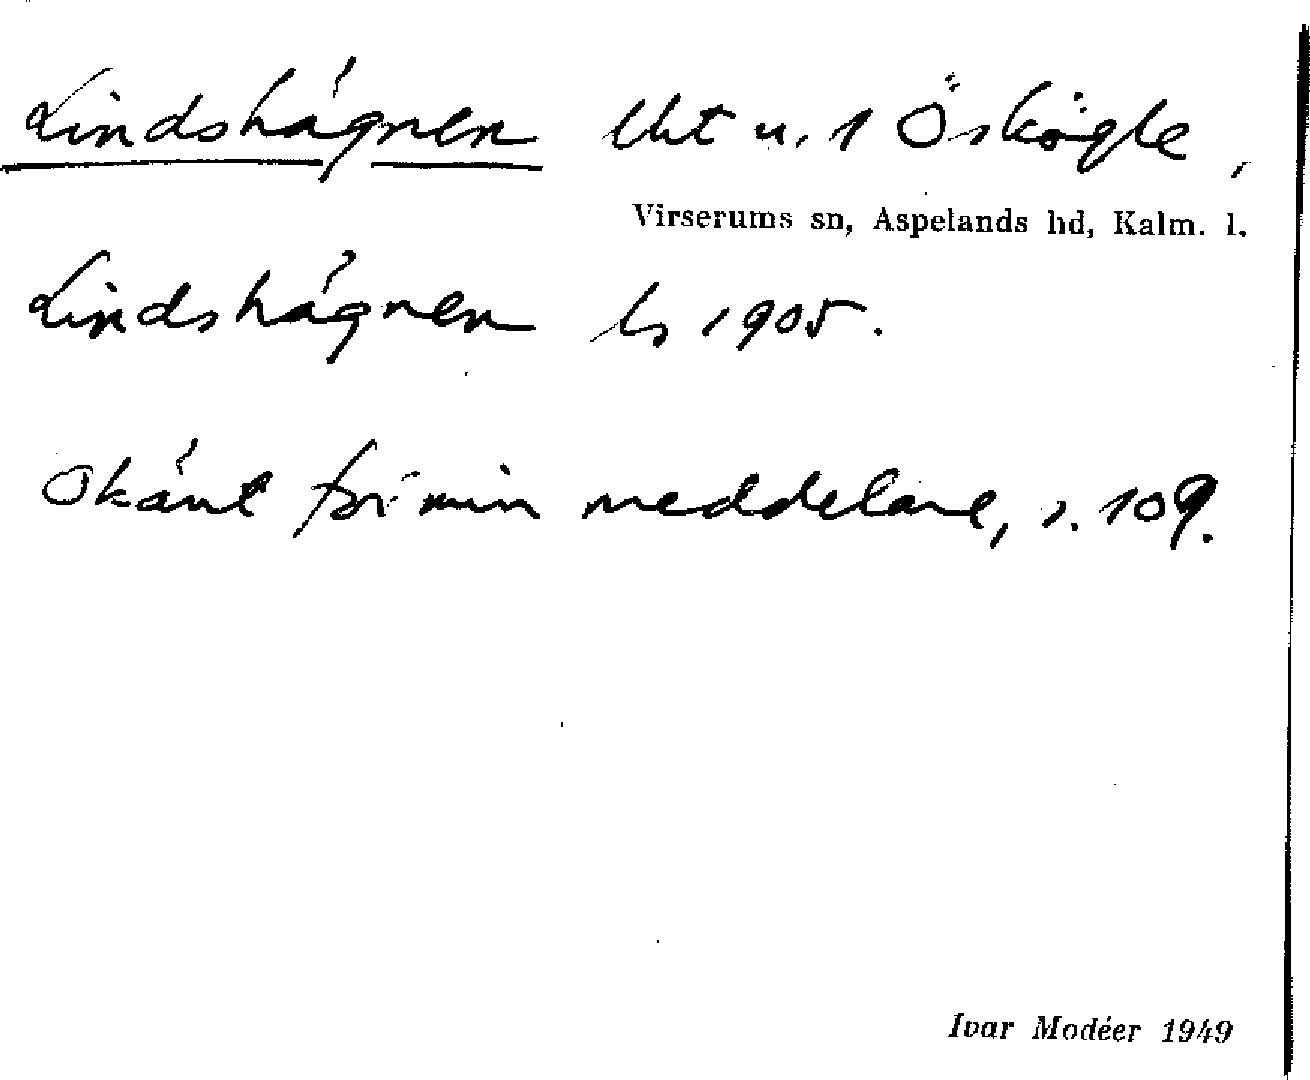 Lindshägnen lht u. 1 Öskögle,
Virserums sn, Aspelands hd, Kalm. l.
Lindshägnen ls 1905.
Okänt för min meddelare, s. 109.
Ivar Modéer 1949